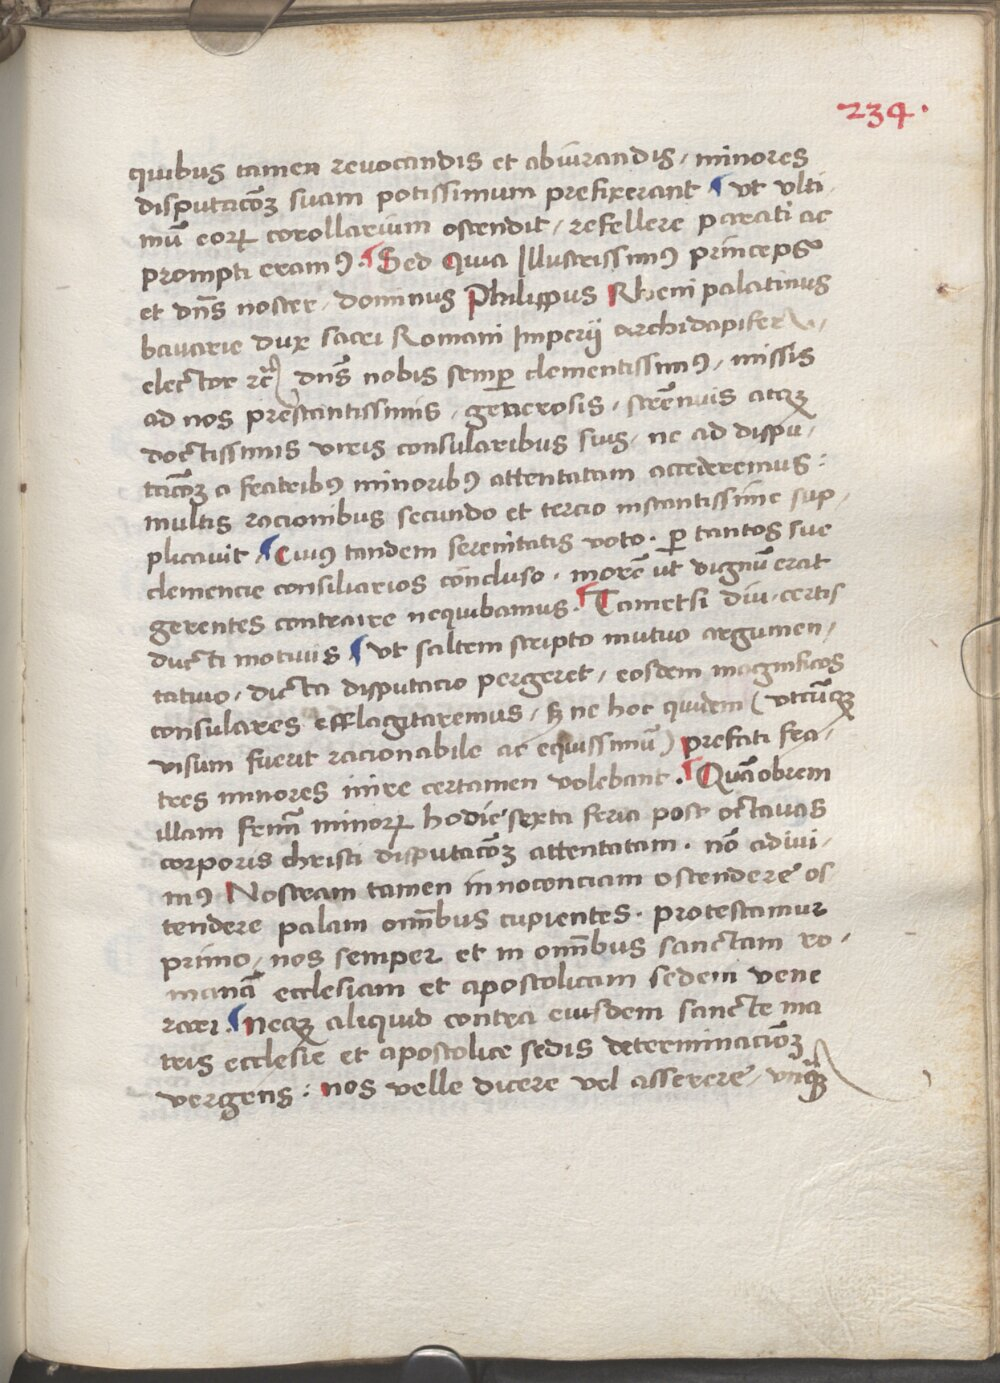 234.
quibus tamen reuocandis et abiurandis / minores
disputacōꝫ suam potissimum prefixerant ¶ vt vlti
mū eorꝝ corollarium ostendit / refellere parati ac
prompti eramꝰ. ¶ Sed Quia Illustrissimꝰ princeps
et dn̄s noster. dominus Philippus Rheni palatinus
bauarie dux sacri Romani Imperij archidapifer /
elector ꝛc̄) dn̄s nobis semꝑ clementissimꝰ, missis
ad nos prestantissimis, generosis, strēnuis atqꝫ
doctissimis viris consularibus suis, ne ad dispu,
tacōꝫ a fratribꝰ minoribꝰ attentatam accederemus:
multis racionibus secundo et tercio instantissime sup,
plicauit ¶ Cuius tandem serenitatis voto. ꝑ tantos sue
clemencie consiliarios concluso. morē ut dignū erat
gerentes contraire nequibamus. ¶ Tametsi diu. certis
ducti motiuis ¶ vt saltem scripto mutuo argumen,
tatiuo. dicta disputacio pergeret, eosdem magnificos
consulares efflagitaremus, sꝫ ne hoc quidem (vtcūqꝫ
visum fuerit racionabile ac equissimū) prefati fra,
tres minores inire certamen volebant. ¶ Quāobrem
illam frm̄ minorꝝ hodie sexta feria post octauas
corporis christi disputacōꝫ attentatam. nō adiui,
mꝰ Nostram tamen innocenciam ostendere os
tendere palam omn̄bus cupientes. protestamur
primo, nos semper et in omn̄bus sanctam ro,
manā ecclesiam et apostolicam sedem vene
rari. ¶ Neqꝫ aliquid contra eiusdem sancte ma
tris ecclesie et apostolice sedis determinaciōꝫ
vergens: nos velle dicere vel asserere, vnqꝫ